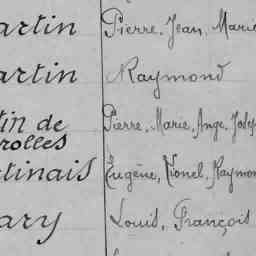 artin Pierre, Jean, Marie
artin Raymond
tin de Pierre, Marie, Ange, Josep
rolles
tinais Eugène, Lionel, Raymon
ary Louis, François